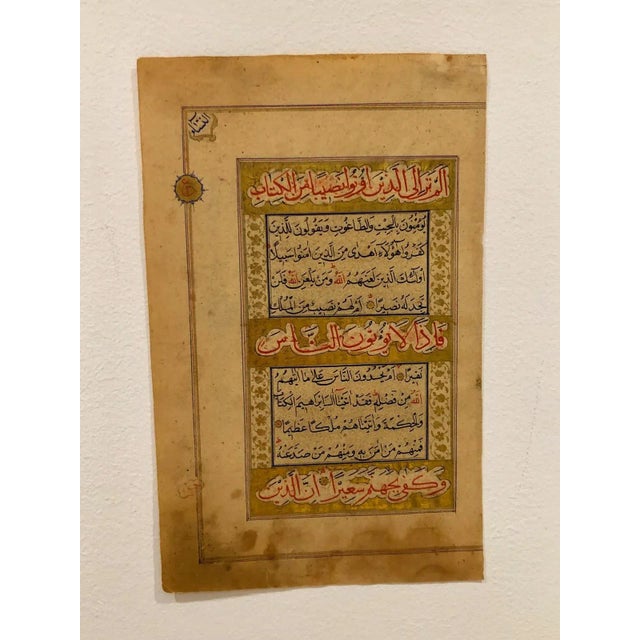 النساء
الم تر الى الذين اوتوا نصيبا من الكتاب
يؤمنون بالجبت والطاغوت ويقولون للذين
كفروا هؤلاء اهدى من الذين امنوا سبيلا
اولئك الذين لعنهم الله ومن يلعن الله فلن
تجد له نصيرا ام لهم نصيب من الملك
فاذا لا يؤتون الناس
نقيرا ام يحسدون الناس على ما اتيهم
الله من فضله فقد اتينا ال ابرهيم الكتاب
والحكمة واتيناهم ملكا عظيما
فمنهم من امن به ومنهم من صد عنه
وكفى بجهنم سعيرا ان الذين